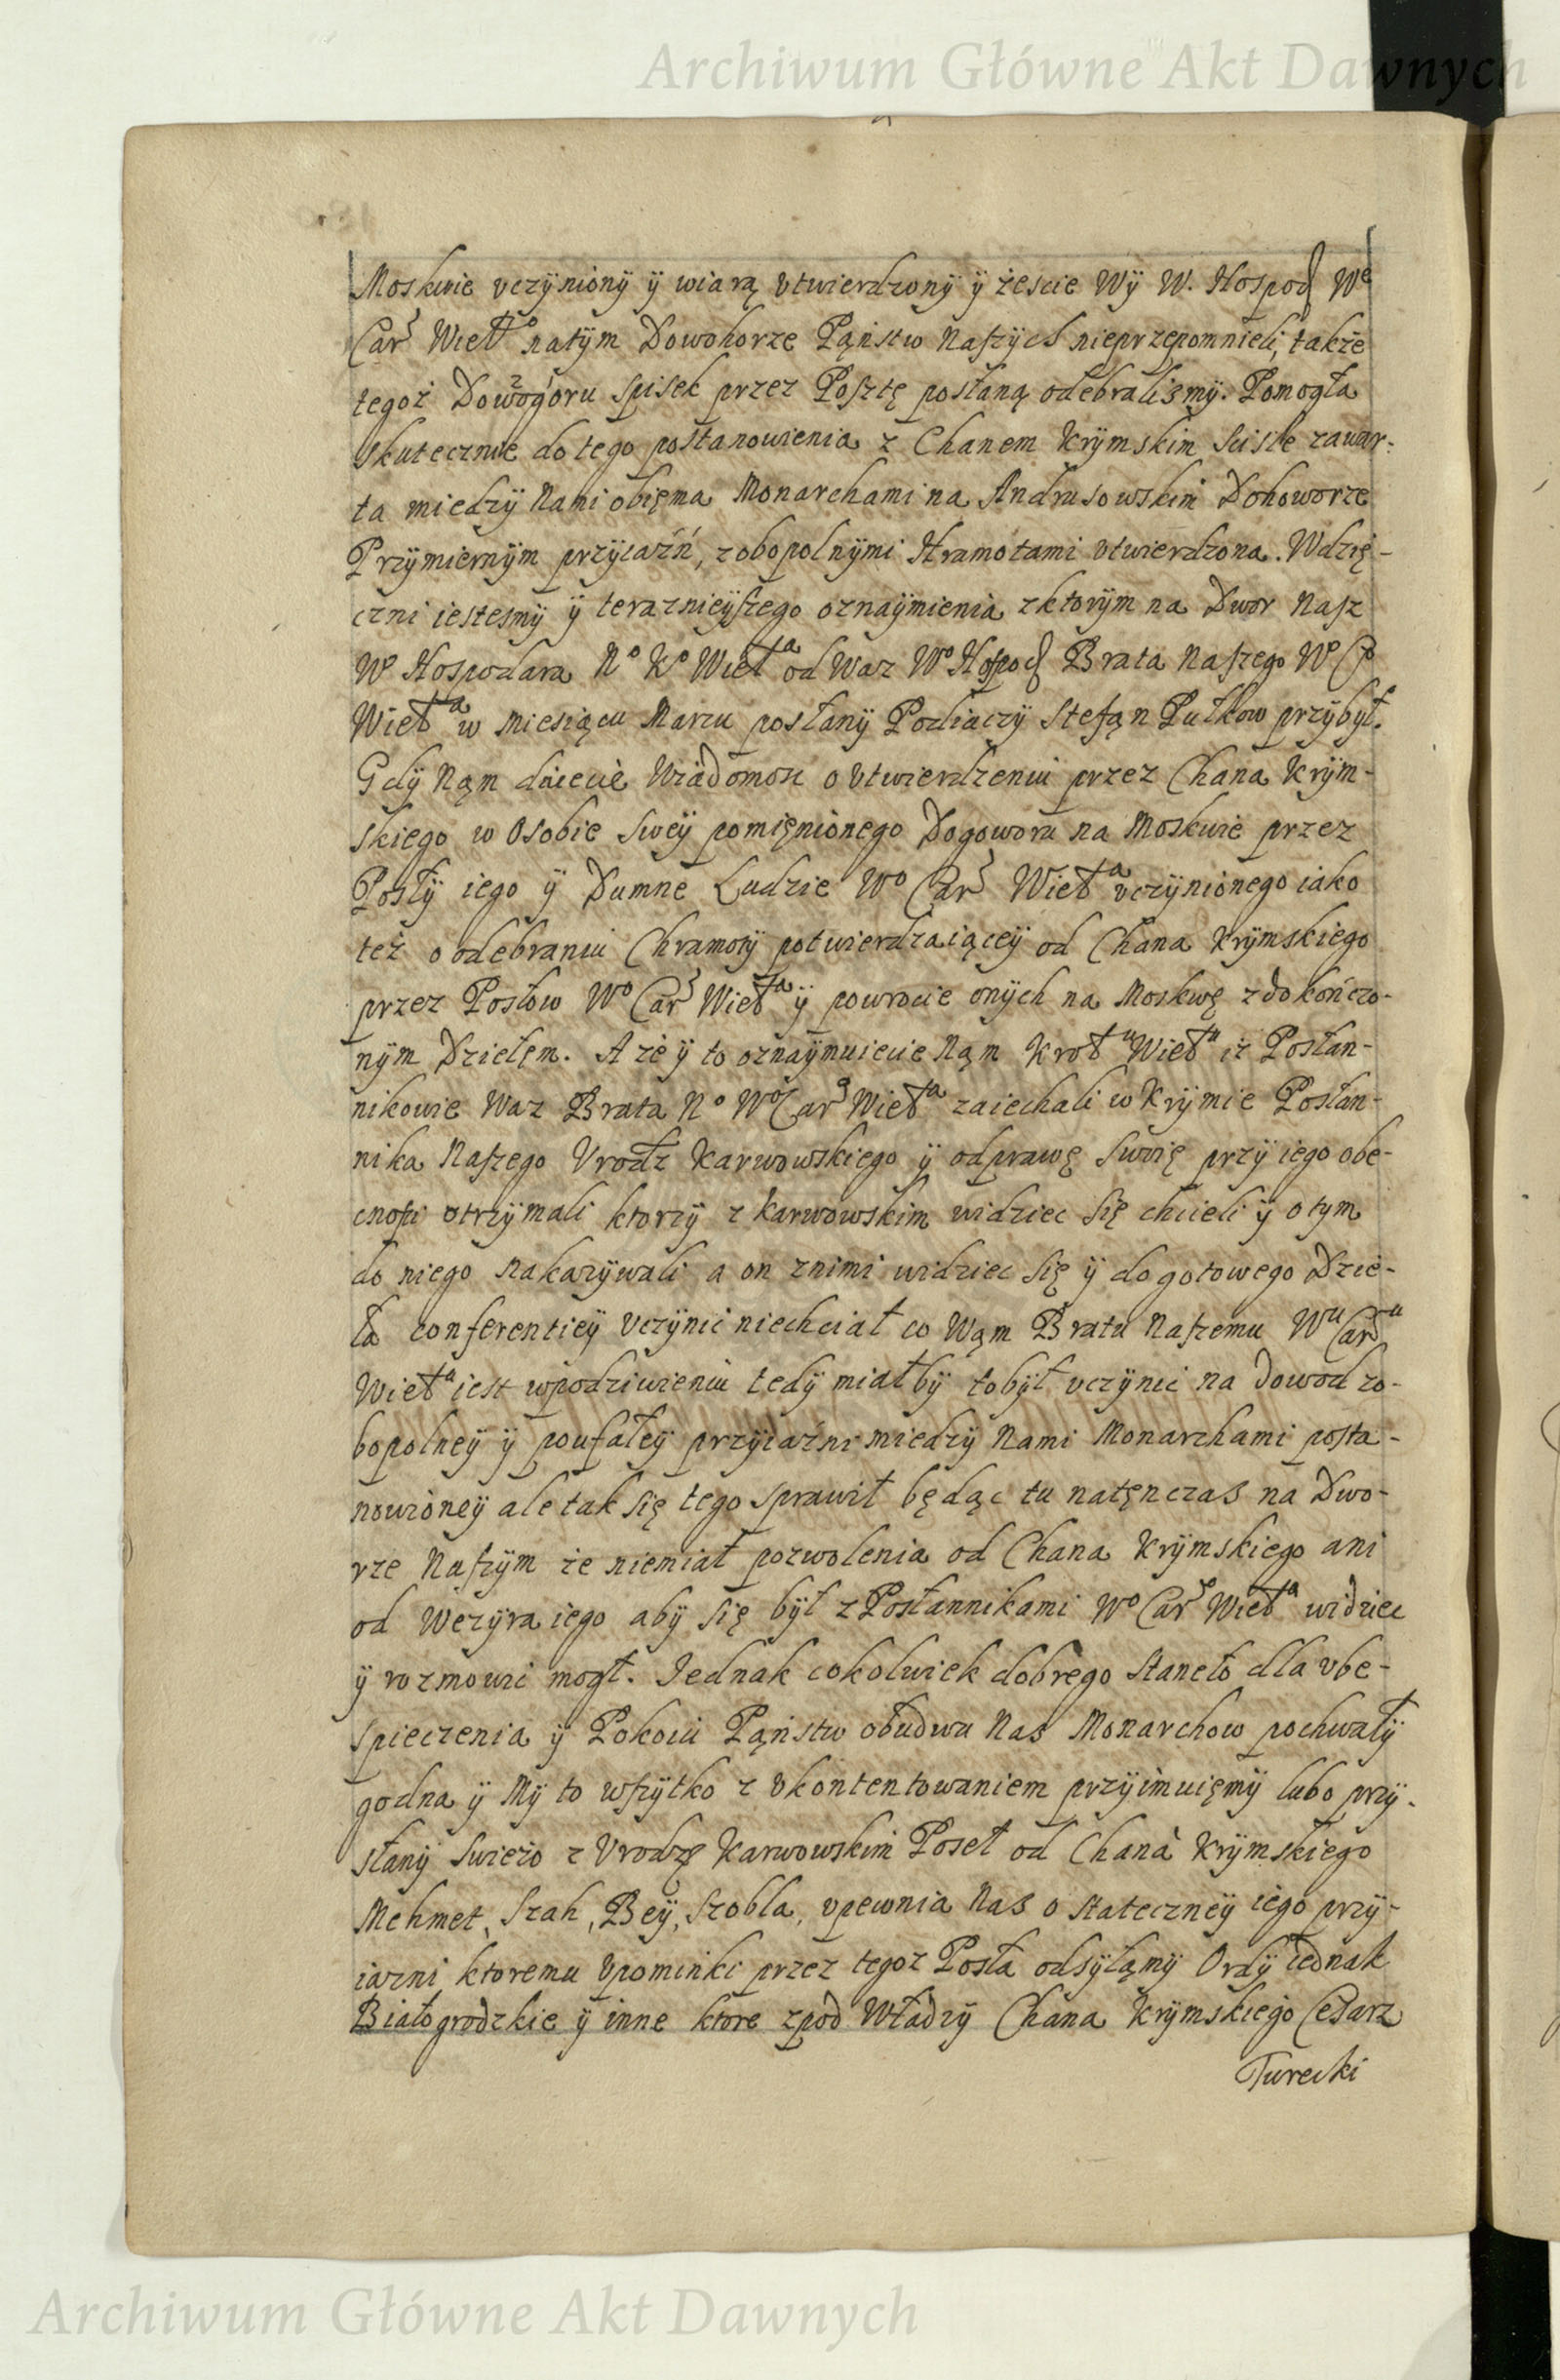 Archiwum Główne Akt Dawnych
Moskwie vczÿnionÿ ÿ wiarą vtwierdzonÿ ÿ żescie Wÿ W. Hospod Wᵉ
Carˢ Wietᵒ natÿm Dowohorze Pąństw Naszÿch nieprzepomnieli, także
tegoż Dowogoru spisek przez Posztę posłaną odebralismÿ. Pomogła
skutecznie do tego postanowienia z Chanem Krÿmskim scisle zawar-
ta miedzÿ Nami obięma Monarchami na Andrusowskim Dohoworze
Przÿmiernÿm przÿiaźń, zobopolnÿmi Hramotami vtwierdzona. Wdzię-
czni iestesmÿ ÿ teraznieÿszego oznaÿmienia zktorÿm na Dwor Nasz
Wᵒ Hospodara Nᵒ Kᵒ Wietᵃ od Waz Wᵒ Hospod Brata Naszego Wᵒ Cᵒ
Wietᵃ w miesiącu Marcu posłanÿ Podiaczÿ Stefąn Pułkow przÿbył.
Gdÿ Nąm daiecie Wiadomosc o vtwierdzeniu przez Chana Krÿm-
skiego w Osobie sweÿ pomięnionego Dogoworu na Moskwie przez
Posłÿ iego ÿ Dumne Ludzie Wᵒ Carˢ Wietᵃ vczÿnionego iako
też o odebraniu Chramotÿ potwierdzaiąceÿ od Chana Krÿmskiego
przez Posłow Wᵒ Carˢ Wietᵃ ÿ powrocie onÿch na Moskwę zdokończo-
nÿm Dziełęm. A że ÿ to oznaÿmuiecie Nąm Krolᵘ Wietᵘ iż Posłan-
nikowie Waz Brata Nᵒ Wᵒ Carˢ Wietᵃ zaiechali w Krÿmie Posłan-
nika Naszego Vrodz Karwowskiego ÿ odprawę swoię przÿ iego obe-
cnosci otrzÿmali ktorzÿ z Karwowskim widziec się chcieli ÿ o tym
do niego nakazÿwali a on znimi widziec się ÿ do gotowego Dzie-
ła conferentieÿ vczÿnić niechciał co Wąm Bratu Naszemu Wᵘ Carᵘ
Wietᵃ iest wpodziwieniu tedÿ miałbÿ tobÿł vczÿnić na dowod zo-
bopolneÿ ÿ poufałeÿ przÿiaźni miedzÿ Nami Monarchami posta-
nowioneÿ ale tak się tego sprawił będąc tu natęnczas na Dwo-
rze Naszÿm że niemiał pozwolenia od Chana Krÿmskiego ani
od Wezÿra iego abÿ się bÿł z Posłannikami Wᵒ Carˢ Wietᵃ widziec
ÿ rozmowić mogł. Jednak cokolwiek dobrego staneło dla vbe-
spieczenia ÿ Pokoiu Pąństw obudwu Nas Monarchow pochwałÿ
godna ÿ Mÿ to wszÿtko z vkontentowaniem przÿimuięmÿ lubo przÿ-
słanÿ swieżo z Vrodz Karwowskim Poseł od Chana Krÿmskiego
Mehmet, Szah, Beÿ, Szobla, vpewnia Nas o stateczneÿ iego przÿ-
iazni ktoremu vpominki przez tegoz Posła odsÿłąmÿ Ordÿ iednak
Białogrodzkie ÿ inne ktore zpod Władzÿ Chana Krÿmskiego Cesarz
Turecki
Archiwum Główne Akt Dawnych